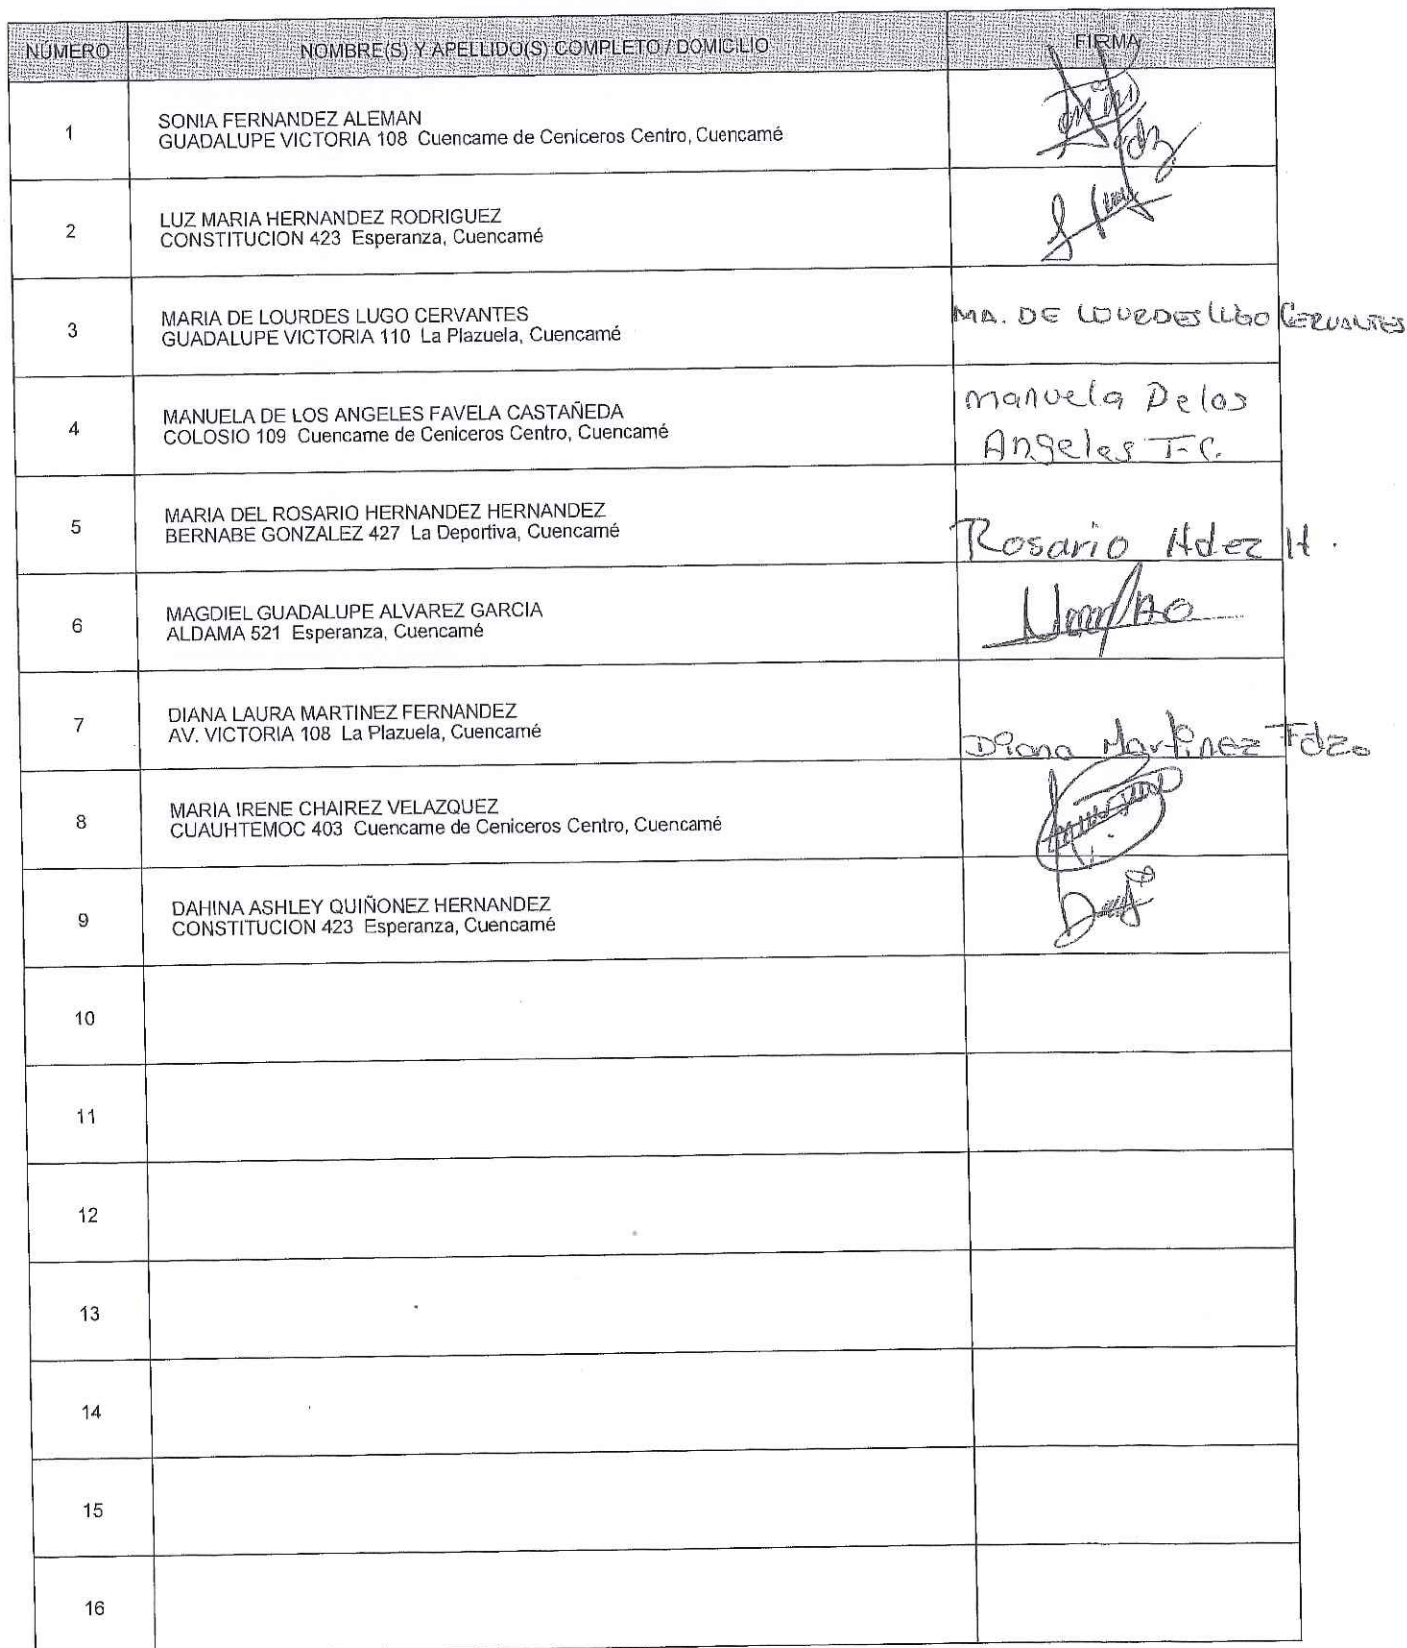 NÚMERO NOMBRE(S) Y APELLIDO(S) COMPLETO / DOMICILIO FIRMA
1
SONIA FERNANDEZ ALEMAN
GUADALUPE VICTORIA 108 Cuencame de Ceniceros Centro, Cuencamé
2
LUZ MARIA HERNANDEZ RODRIGUEZ
CONSTITUCION 423 Esperanza, Cuencamé
3
MARIA DE LOURDES LUGO CERVANTES
GUADALUPE VICTORIA 110 La Plazuela, Cuencamé
MA. DE LOURDES LUGO CERVANTES
4
MANUELA DE LOS ANGELES FAVELA CASTAÑEDA
COLOSIO 109 Cuencame de Ceniceros Centro, Cuencamé
Manuela De los
Angeles F.C.
5
MARIA DEL ROSARIO HERNANDEZ HERNANDEZ
BERNABE GONZALEZ 427 La Deportiva, Cuencamé
Rosario Hdez H.
6
MAGDIEL GUADALUPE ALVAREZ GARCIA
ALDAMA 521 Esperanza, Cuencamé
7
DIANA LAURA MARTINEZ FERNANDEZ
AV. VICTORIA 108 La Plazuela, Cuencamé
Diana Martinez Fdz.
8
MARIA IRENE CHAIREZ VELAZQUEZ
CUAUHTEMOC 403 Cuencame de Ceniceros Centro, Cuencamé
9
DAHINA ASHLEY QUIÑONEZ HERNANDEZ
CONSTITUCION 423 Esperanza, Cuencamé
10
11
12
13
14
15
16